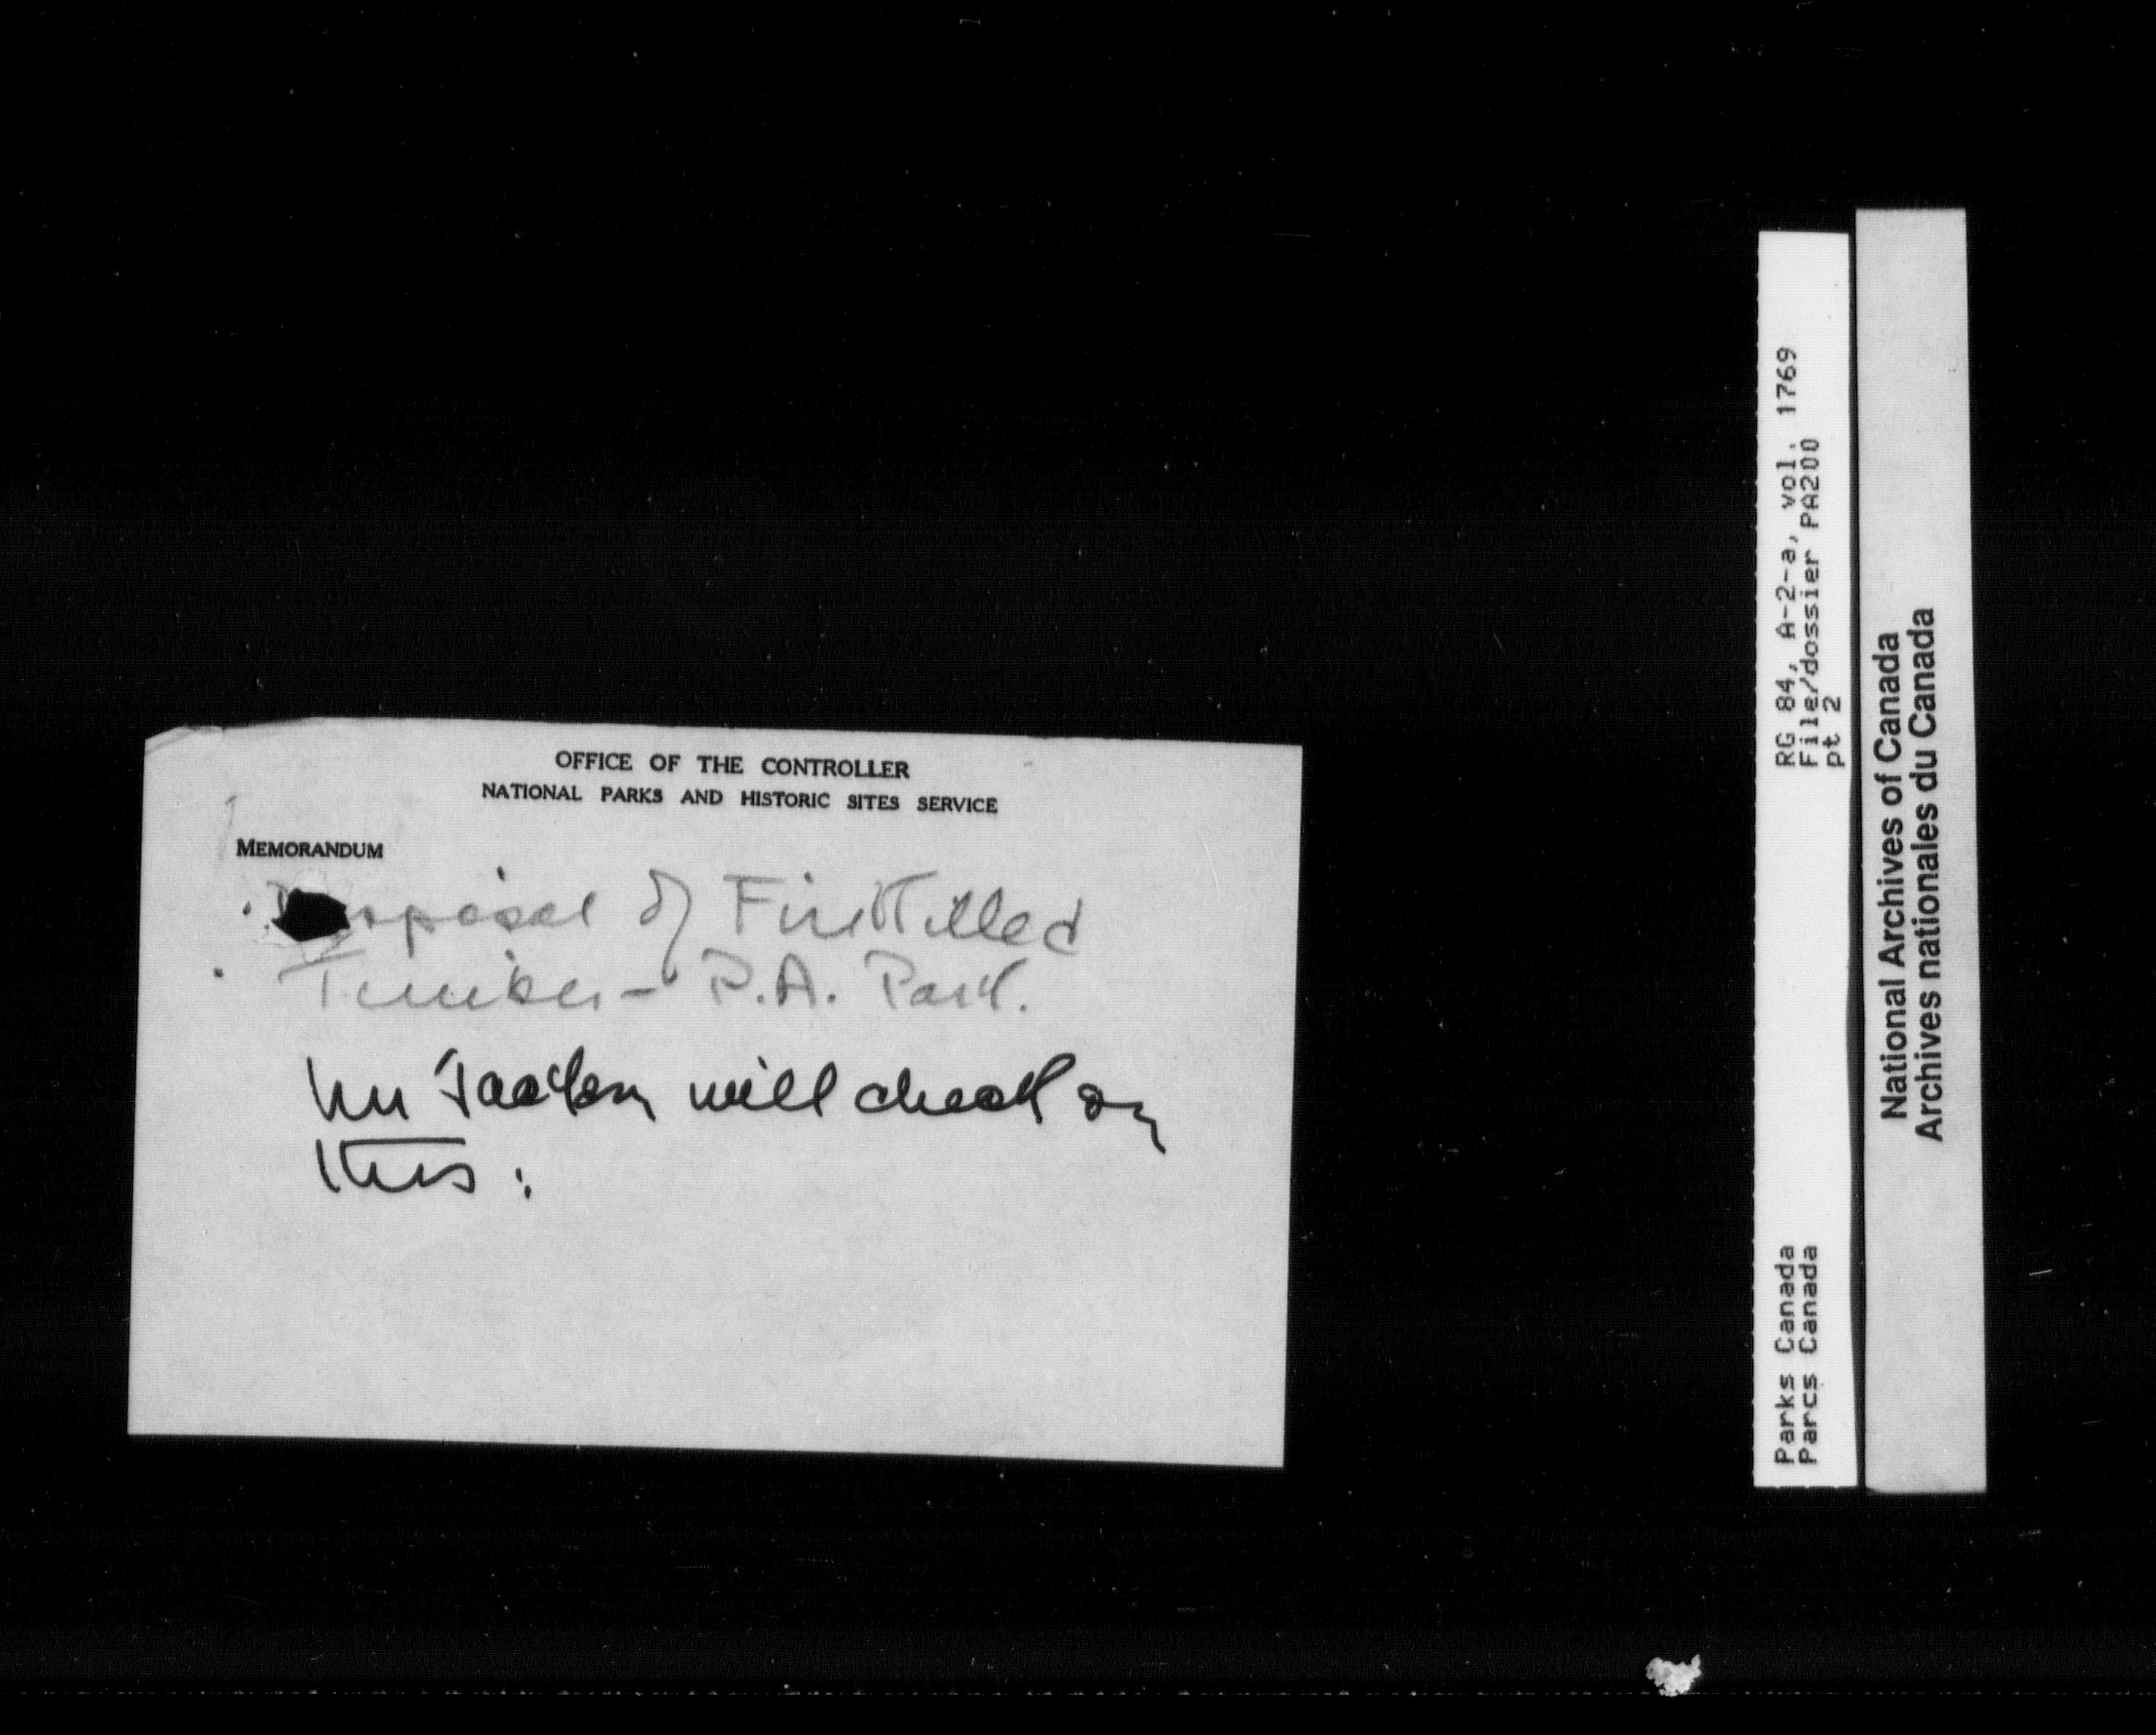 OFFICE OF THE CONTROLLER
NATIONAL PARKS AND HISTORIC SITES SERVICE
MEMORANDUM
sposal of Fire Killed
Timber - P.A. Park.
Mr will check on
this.
RG 84, A-2-a, vol. 1769
File/dossier PA200
pt 2
Parks Canada
Parcs Canada
National Archives of Canada
Archives nationales du Canada